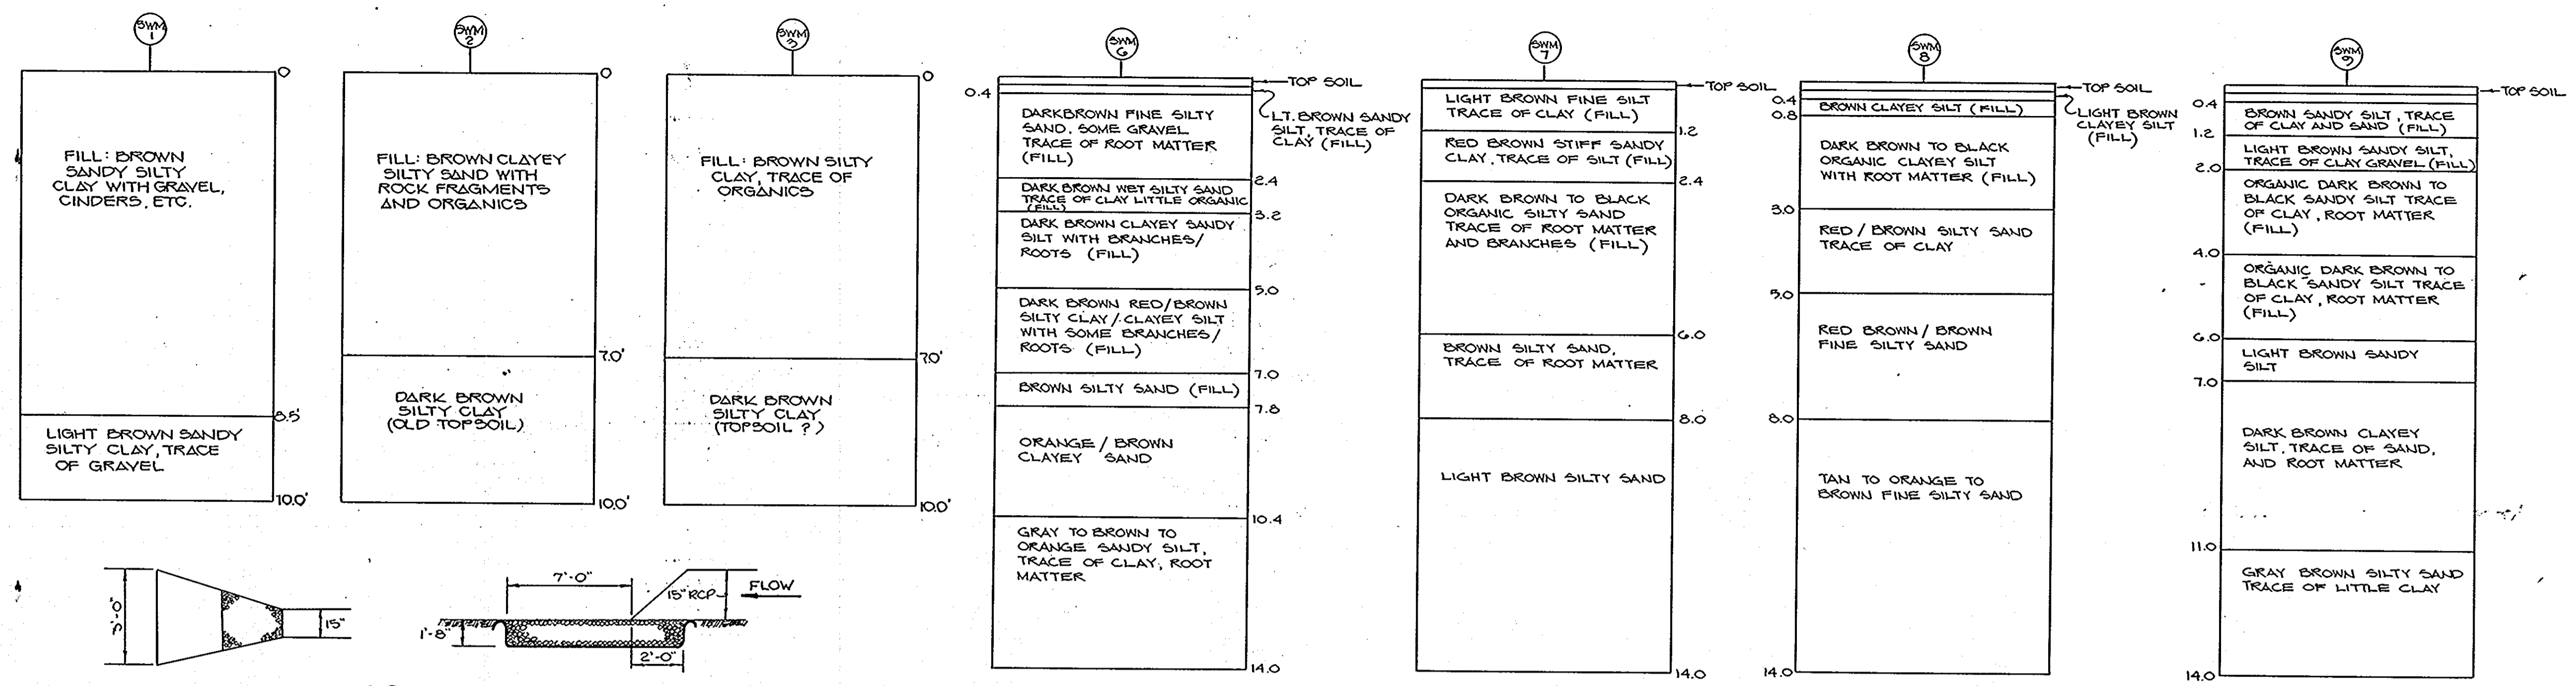 SWM
1
0
FILL: BROWN
SANDY SILTY
CLAY WITH GRAVEL,
CINDERS, ETC.
8.5'
LIGHT BROWN SANDY
SILTY CLAY, TRACE
OF GRAVEL
10.0'
SWM
2
0
FILL: BROWN CLAYEY
SILTY SAND WITH
ROCK FRAGMENTS
AND ORGANICS
7.0'
DARK BROWN
SILTY CLAY
(OLD TOPSOIL)
10.0'
SWM
3
0
FILL: BROWN SILTY
CLAY, TRACE OF
ORGANICS
7.0'
DARK BROWN
SILTY CLAY
(TOPSOIL ?)
10.0'
SWM
6
TOP SOIL
0.4
LT. BROWN SANDY
SILT, TRACE OF
CLAY (FILL)
DARKBROWN FINE SILTY
SAND. SOME GRAVEL
TRACE OF ROOT MATTER
(FILL)
2.4
DARK BROWN WET SILTY SAND
TRACE OF CLAY LITTLE ORGANIC
(FILL)
3.2
DARK BROWN CLAYEY SANDY
SILT WITH BRANCHES/
ROOTS (FILL)
5.0
DARK BROWN RED/BROWN
SILTY CLAY/CLAYEY SILT
WITH SOME BRANCHES/
ROOTS (FILL)
7.0
BROWN SILTY SAND (FILL)
7.8
ORANGE / BROWN
CLAYEY SAND
10.4
GRAY TO BROWN TO
ORANGE SANDY SILT,
TRACE OF CLAY, ROOT
MATTER
14.0
SWM
7
TOP SOIL
LIGHT BROWN FINE SILT
TRACE OF CLAY (FILL)
1.2
RED BROWN STIFF SANDY
CLAY, TRACE OF SILT (FILL)
2.4
DARK BROWN TO BLACK
ORGANIC SILTY SAND
TRACE OF ROOT MATTER
AND BRANCHES (FILL)
6.0
BROWN SILTY SAND,
TRACE OF ROOT MATTER
8.0
LIGHT BROWN SILTY SAND
14.0
SWM
8
TOP SOIL
0.4
LIGHT BROWN
CLAYEY SILT
(FILL)
BROWN CLAYEY SILT (FILL)
0.8
DARK BROWN TO BLACK
ORGANIC CLAYEY SILT
WITH ROOT MATTER (FILL)
3.0
RED / BROWN SILTY SAND
TRACE OF CLAY
5.0
RED BROWN / BROWN
FINE SILTY SAND
8.0
TAN TO ORANGE TO
BROWN FINE SILTY SAND
14.0
SWM
9
TOP SOIL
0.4
BROWN SANDY SILT, TRACE
OF CLAY AND SAND (FILL)
1.2
LIGHT BROWN SANDY SILT,
TRACE OF CLAY GRAVEL (FILL)
2.0
ORGANIC DARK BROWN TO
BLACK SANDY SILT TRACE
OF CLAY, ROOT MATTER
(FILL)
4.0
ORGANIC DARK BROWN TO
BLACK SANDY SILT TRACE
OF CLAY, ROOT MATTER
(FILL)
6.0
LIGHT BROWN SANDY
SILT
7.0
DARK BROWN CLAYEY
SILT, TRACE OF SAND,
AND ROOT MATTER
11.0
GRAY BROWN SILTY SAND
TRACE OF LITTLE CLAY
14.0
15"
7'-0"
15" RCP
FLOW
1'-8"
2'-0"